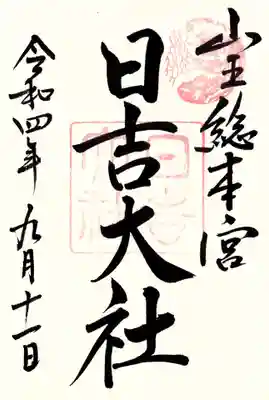 山王総本宮
日吉大社
令和四年九月十一日